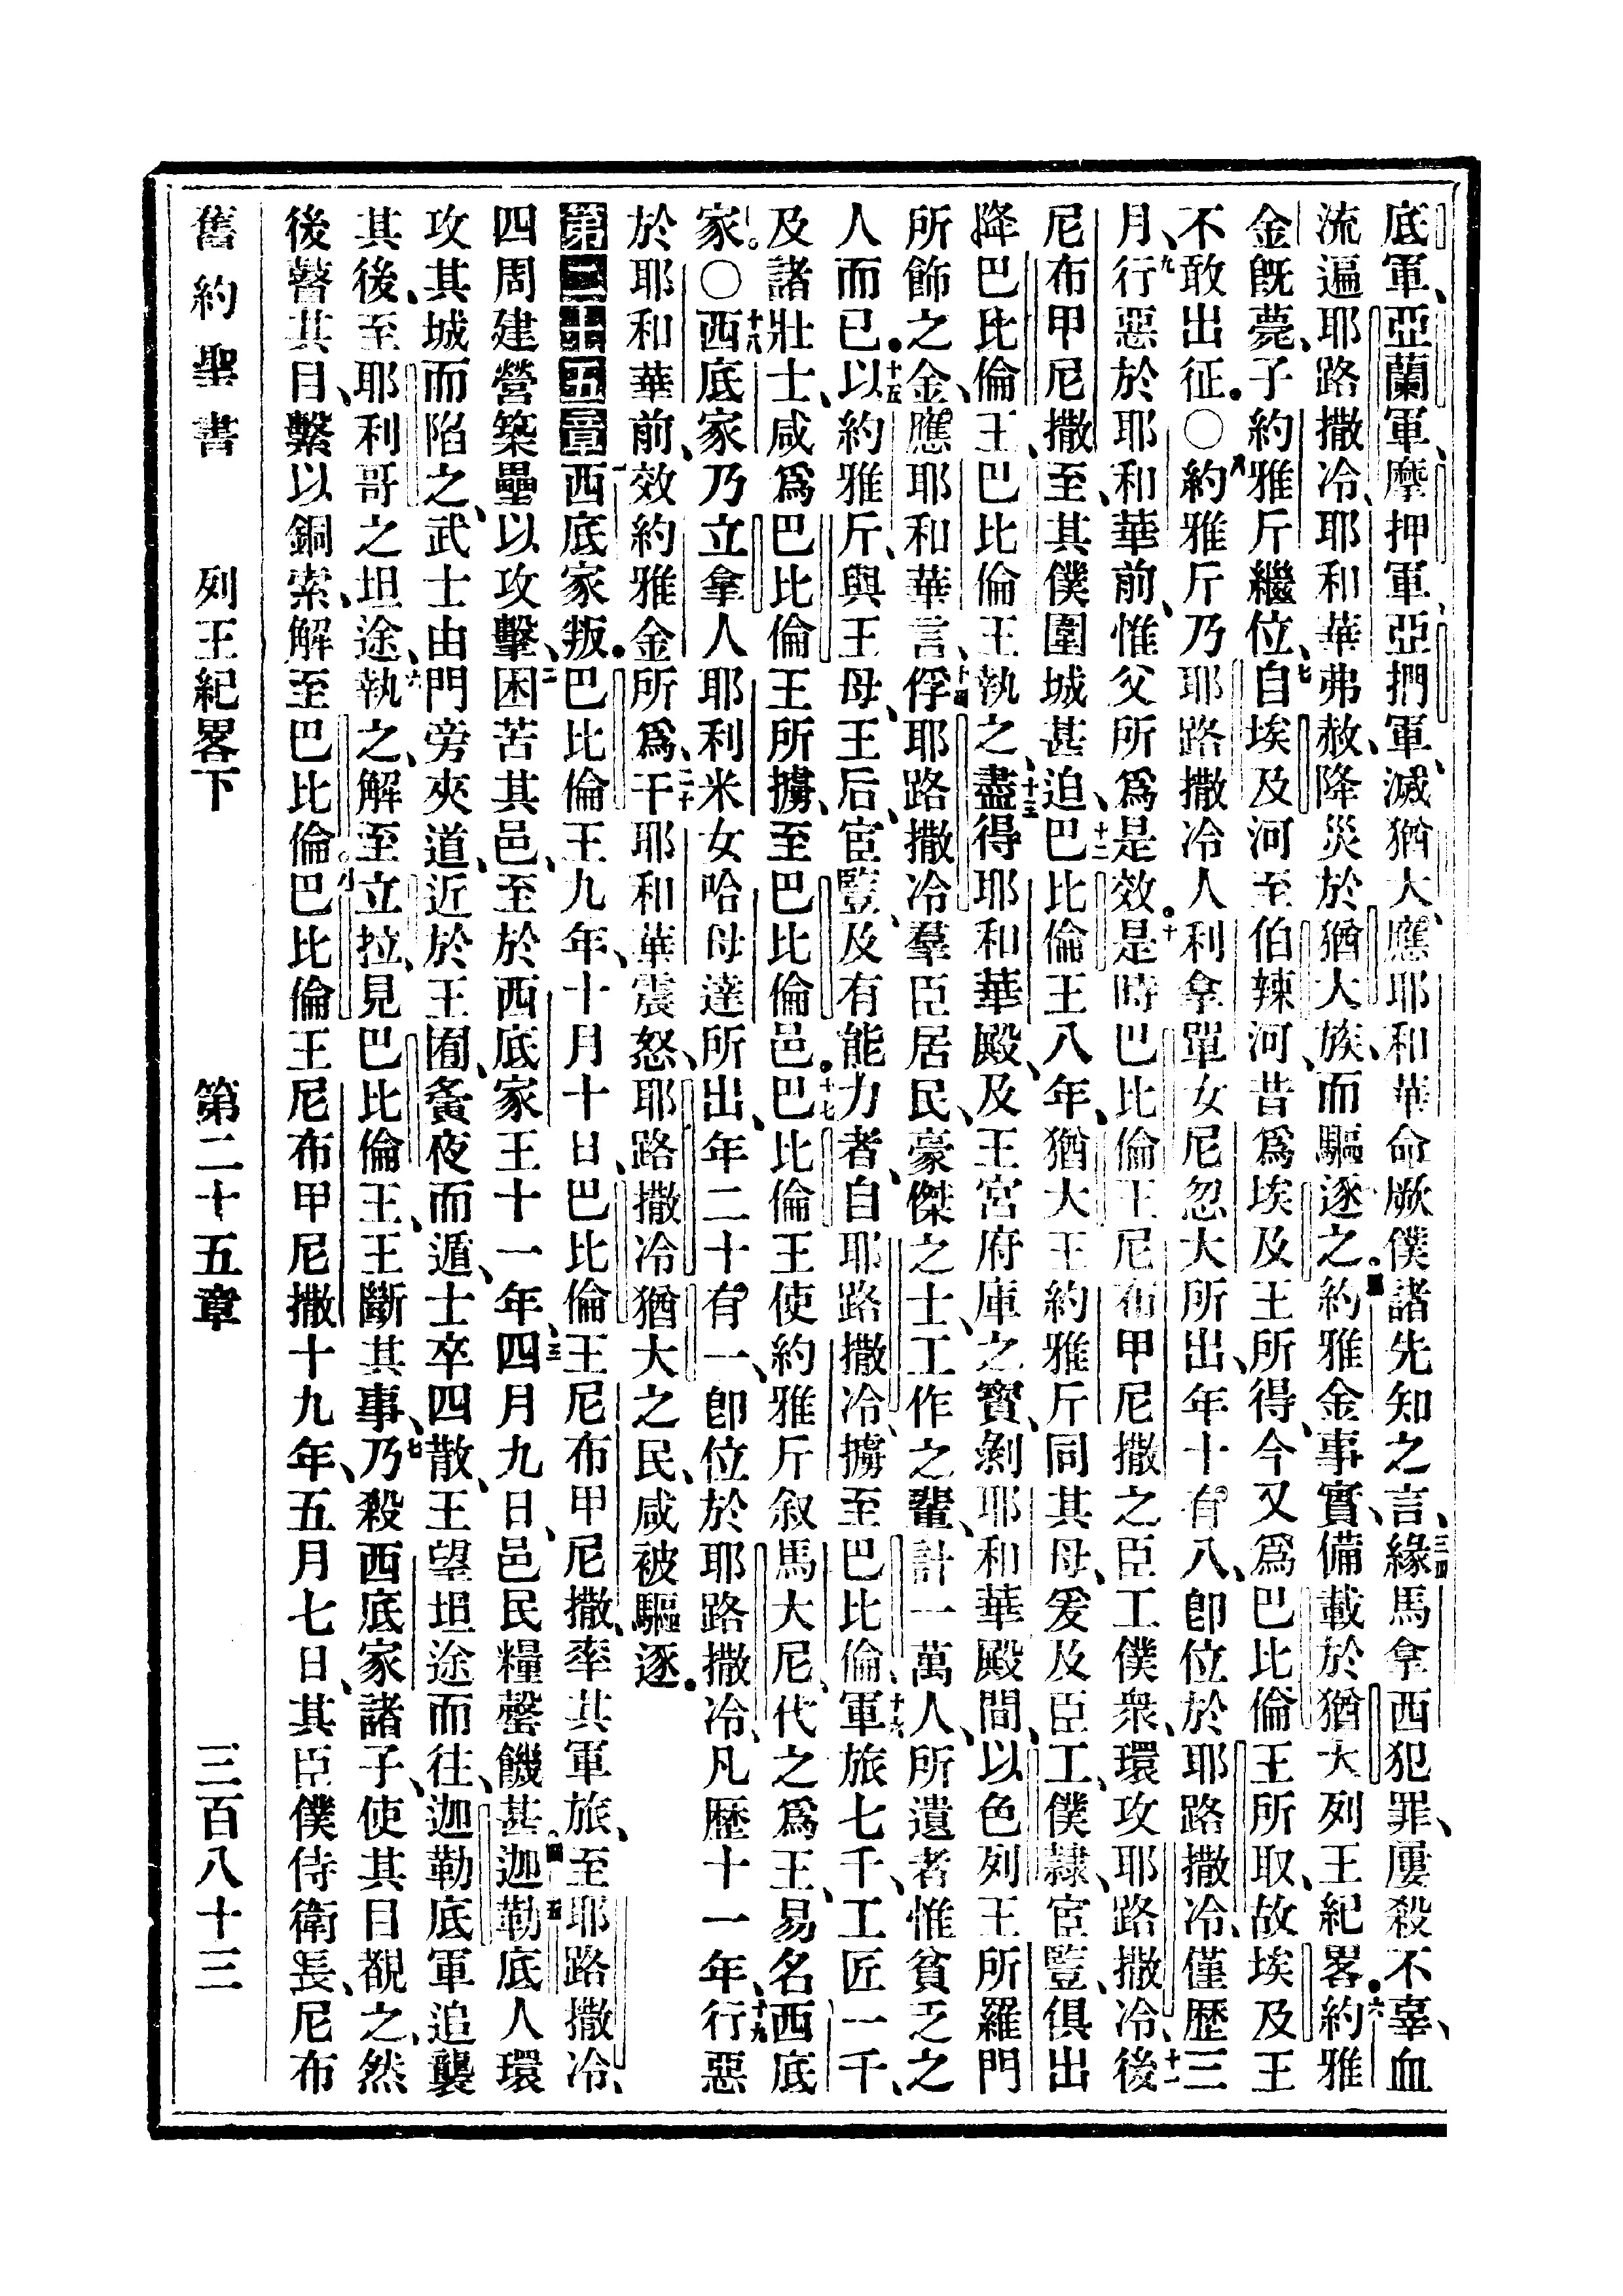 底軍、亞蘭軍、摩押軍、亞捫軍、滅猶大、應耶和華命厥僕諸先知之言、三四緣馬拿西犯罪、屢殺不辜、血
流遍耶路撒冷、耶和華弗赦、降災於猶大族、而驅逐之。五約雅金事實、備載於猶大列王紀畧。六約雅
金旣薨、子約雅斤繼位、七自埃及河至伯辣河、昔爲埃及王所得、今又爲巴比倫王所取、故埃及王
不敢出征。○八約雅斤乃耶路撒冷人利拿單女尼忽大所出、年十有八、卽位於耶路撒冷、僅歷三
月、九行惡於耶和華前、惟父所爲是效。十是時巴比倫王尼布甲尼撒之臣工僕衆、環攻耶路撒冷、十一後
尼布甲尼撒至、其僕圍城甚迫、十二巴比倫王八年、猶大王約雅斤同其母、爰及臣工、僕隸、宦豎、俱出
降巴比倫王、巴比倫王執之、十三盡得耶和華殿、及王宮府庫之寶、剝耶和華殿間、以色列王所羅門
所飾之金、應耶和華言、十四俘耶路撒冷羣臣居民、豪傑之士、工作之輩、計一萬人、所遺者惟貧乏之
人而已。十五以約雅斤、與王母、王后、宦豎、及有能力者、自耶路撒冷、擄至巴比倫、十六軍旅七千、工匠一千、
及諸壯士、咸爲巴比倫王所擄、至巴比倫邑。十七巴比倫王使約雅斤叔馬大尼、代之爲王、易名西底
家。○十八西底家乃立拿人耶利米女哈母達所出、年二十有一、卽位於耶路撒冷、凡歷十一年、十九行惡
於耶和華前、效約雅金所爲、二十干耶和華震怒、耶路撒冷猶大之民、咸被驅逐。
第二十五章一西底家叛。巴比倫王九年、十月十日、巴比倫王尼布甲尼撒、率其軍旅、至耶路撒冷、
四周建營築壘以攻擊、二困苦其邑、至於西底家王十一年、三四月九日、邑民糧罄饑甚。四迦勒底人環
攻其城而陷之、武士由門旁夾道、近於王囿、夤夜而遁、士卒四散、王望坦途而往、五迦勒底軍追襲
其後、至耶利哥之坦途、六執之、解至立拉、見巴比倫王、王斷其事、七乃殺西底家諸子、使其目覩之、然
後瞽其目、繫以銅索、解至巴比倫。八巴比倫王尼布甲尼撒十九年、五月七日、其臣僕侍衛長、尼布
舊約聖書 列王紀畧下 第二十五章 三百八十三